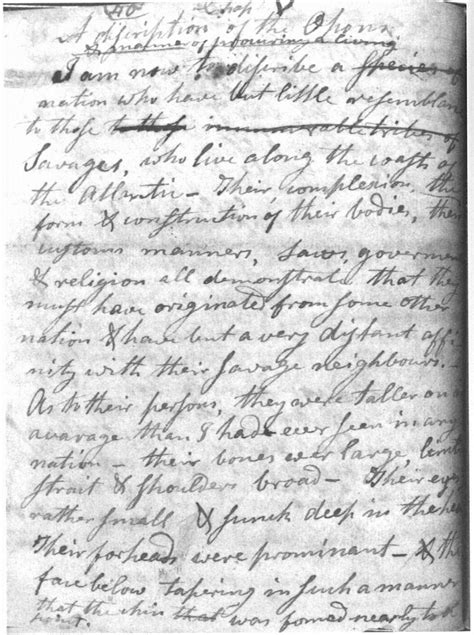 40 Chap
A discription of the Ohons
& manner of procuring a living
I am now to discribe a species of
nation who have but little resemblan
to those to those innumerable tribes of
Savages, who live along the coasts of
the Atlantic — Their complexion, the
form & construction of their bodies, their
customs manners, Laws, governmen
& religion all demonstrate that they
must have originated from some other
nation & have but a very distant affi
nity with their savage neighbours. —
As to their persons, they were taller on a
avarage than I had ever seen in any
nation — their bones were large, limbs
strait & shoulders broad — Their eyes
rather small & sunck deep in the hea
Their forheads were prominant — & the
face below tapering in such a manner
that the chin that was formed nearly to a
point.